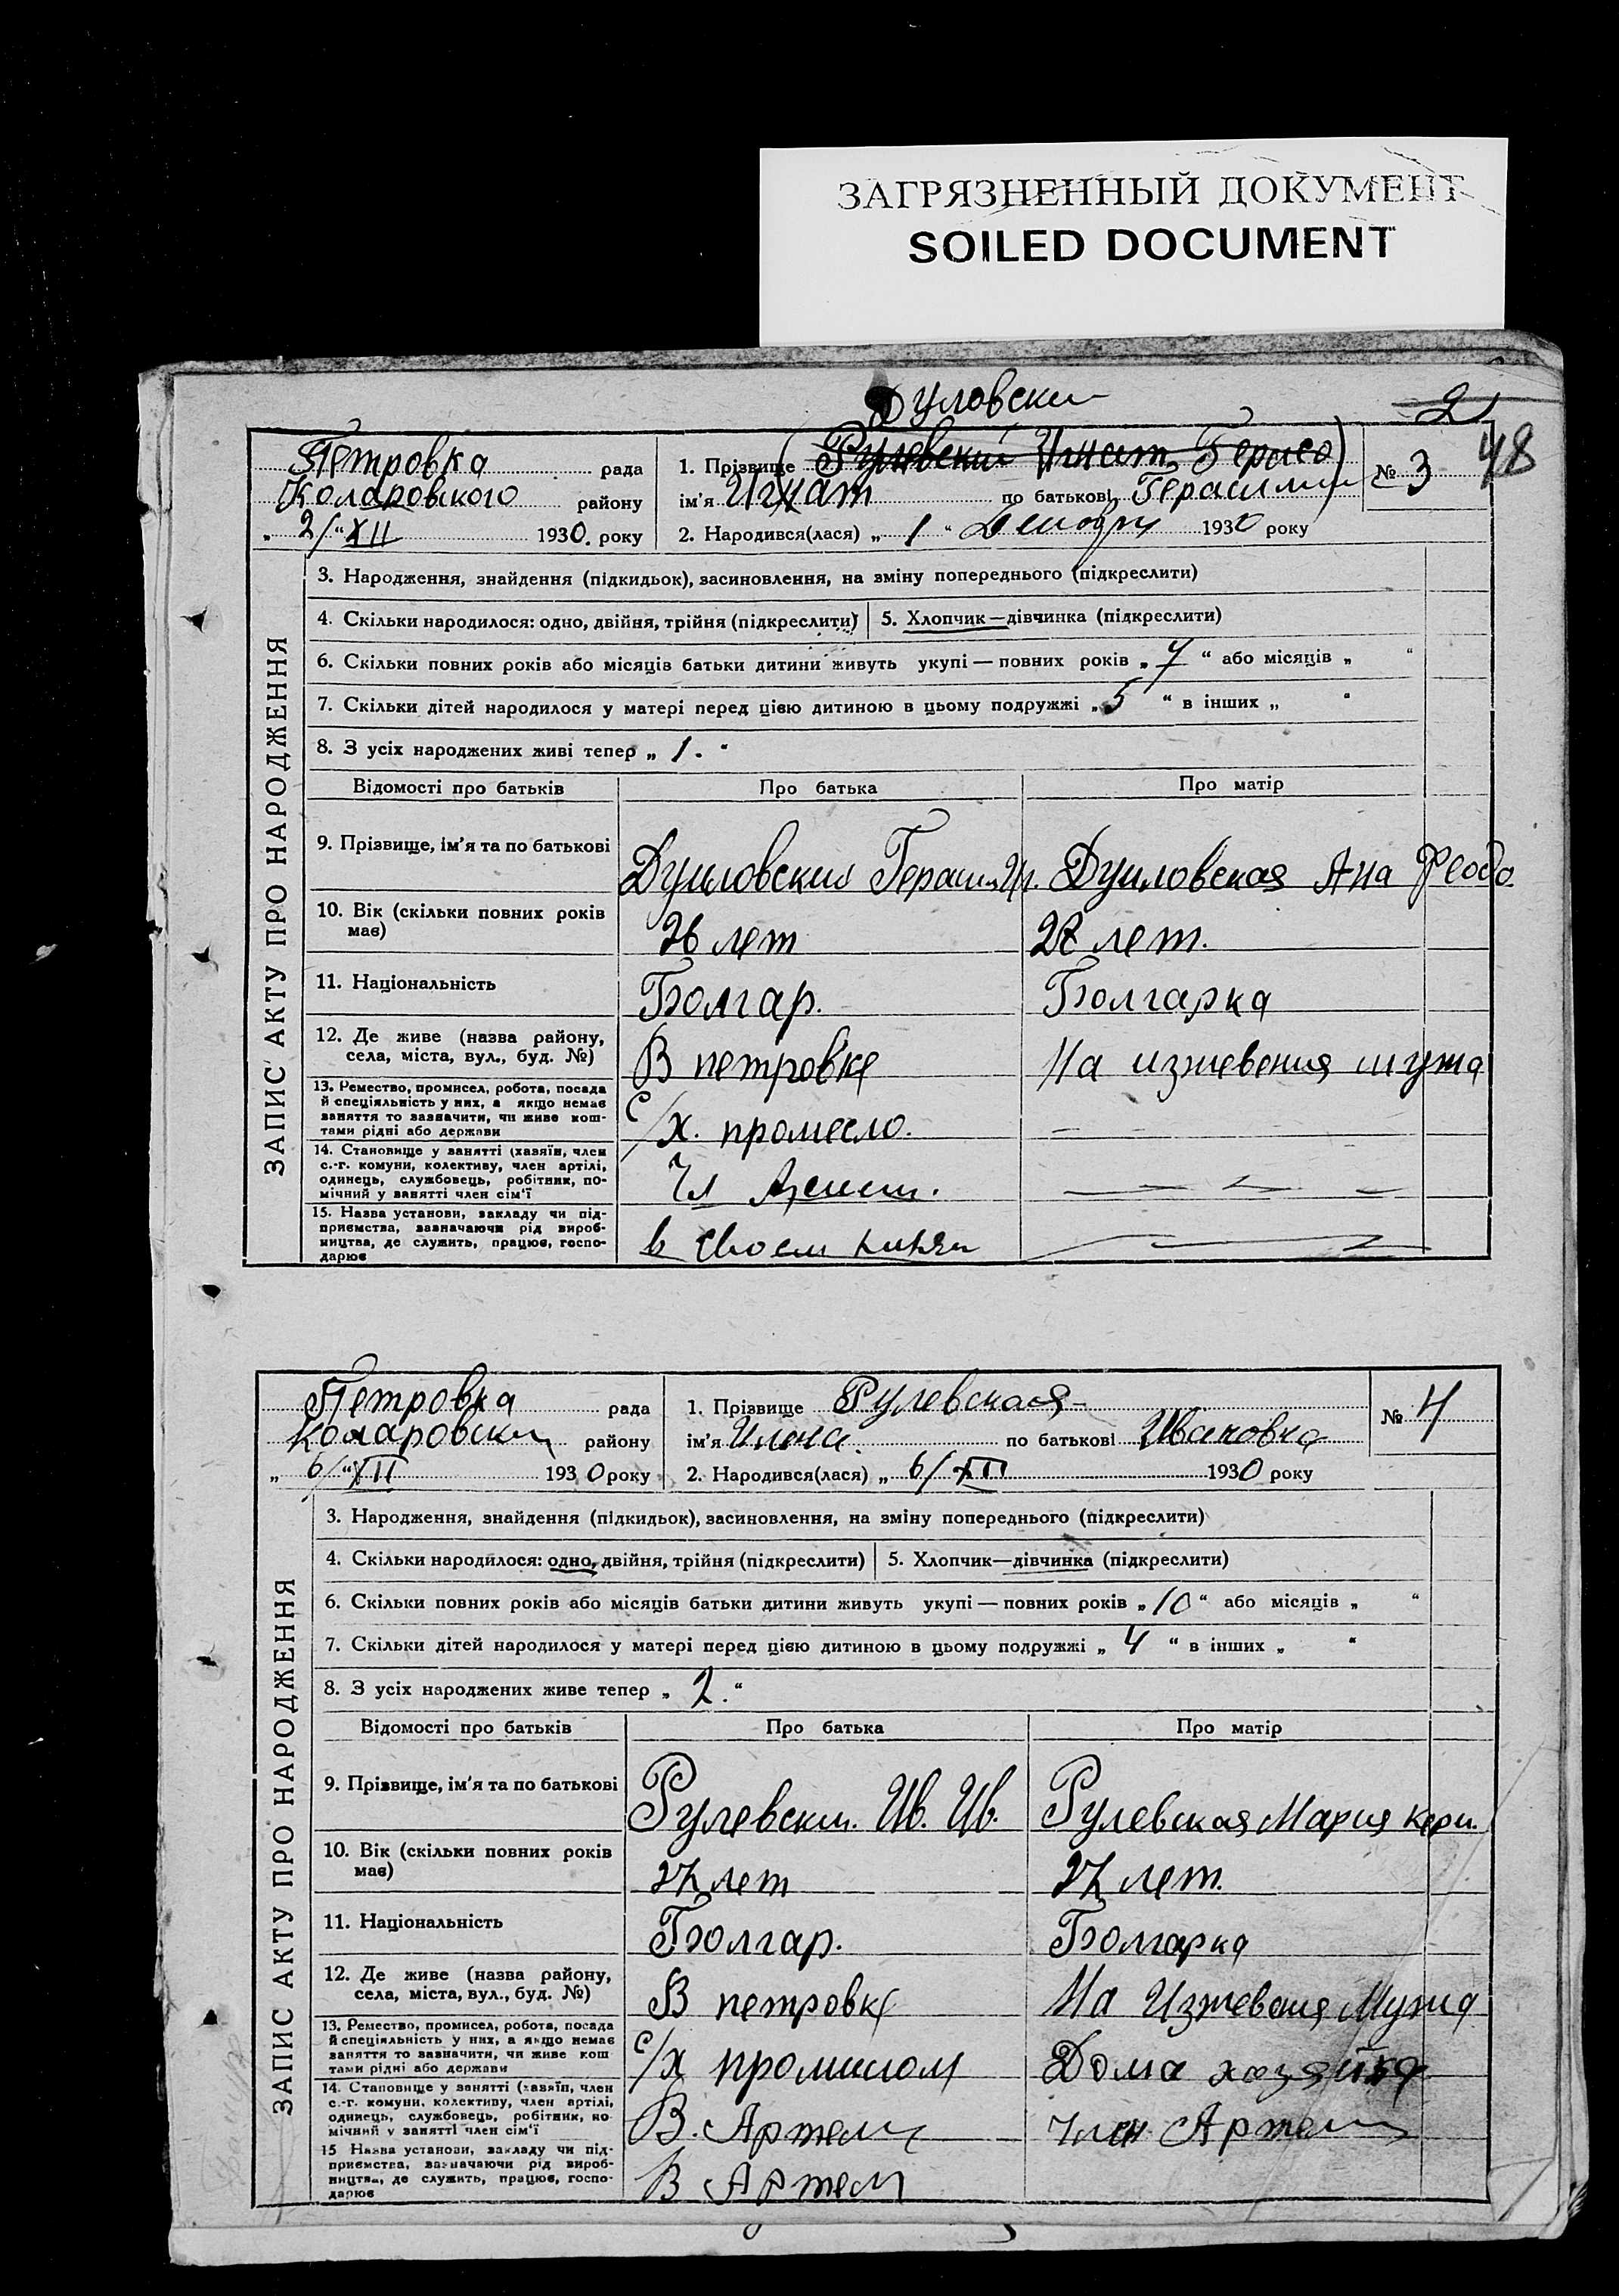 ЗАГРЯЗНЕННЫЙ ДОКУМЕНТ
SOILED DOCUMENT
Дуловски
2
48
ЗАПИС АКТУ ПРО НАРОДЖЕННЯ
Петровка рада
Коларовского району
„ 2/“ XII 1930. року
1. Прізвище (Рулевский Игнат Герасо)
ім'я Игнат по батькові Герасими
2. Народився(лася) „ 1 “ Декабря 1930 року
№ 3
3. Народження, знайдення (підкидьок), засиновлення, на зміну попереднього (підкреслити)
4. Скільки народилося: одно, двійня, трійня (підкреслити) 5. Хлопчик—дівчинка (підкреслити)
6. Скільки повних років або місяців батьки дитини живуть укупі — повних років „ 7 “ або місяців „ “
7. Скільки дітей народилося у матері перед цією дитиною в цьому подружжі „ 5 “ в інших „ “
8. З усіх народжених живі тепер „ 1. “
Відомості про батьків Про батька Про матір
9. Прізвище, ім'я та по батькові Дуиловский Герасим Иг. Дуиловская Ана Феодо.
10. Вік (скільки повних років
має) 26 лет 28 лет.
11. Національність Болгар. Болгарка
12. Де живе (назва району,
села, міста, вул., буд. №) В петровке На изжевения мужа
13. Ремество, промисел, робота, посада
й спеціяльність у них, а якщо немає
заняття то зазначити, чи живе кош-
тами рідні або держави с/х. промесло. – – –
14. Становище у занятті (хазяїн, член
с.-г. комуни, колективу, член артілі,
одинець, службовець, робітник, по-
мічний у занятті член сім'ї Чл
15. Назва установи, закладу чи під-
приємства, зазначаючи рід вироб-
ництва, де служить, працює, госпо-
дарює в своем
ЗАПИС АКТУ ПРО НАРОДЖЕННЯ
Петровка рада
Коларовски району
„ 6/“ XII 1930 року
1. Прізвище Рулевская
ім'я Илена. по батькові Ивановка
2. Народився(лася) „ 6/XII 1930 року
№ 4
3. Народження, знайдення (підкидьок), засиновлення, на зміну попереднього (підкреслити)
4. Скільки народилося: одно, двійня, трійня (підкреслити) 5. Хлопчик—дівчинка (підкреслити)
6. Скільки повних років або місяців батьки дитини живуть укупі — повних років „ 10 “ або місяців „ “
7. Скільки дітей народилося у матері перед цією дитиною в цьому подружжі „ 4 “ в інших „ “
8. З усіх народжених живе тепер „ 2. “
Відомості про батьків Про батька Про матір
9. Прізвище, ім'я та по батькові Рулевски. Ив. Ив. Рулевская Мария Кери.
10. Вік (скільки повних років
має) 27 лет 27 лет.
11. Національність Болгар. Болгарка
12. Де живе (назва району,
села, міста, вул., буд. №) В петровке На Изжевения Мужа
13. Ремество, промисел, робота, посада
й спеціяльність у них, а якщо немає
заняття то зазначити, чи живе кош
тами рідні або держави с/х промислом Дома хозяйка
14. Становище у занятті (хазяїн, член
с.-г. комуни, колективу, член артілі,
одинець, службовець, робітник, по-
мічний у занятті член сім'ї В. Артели член Артели
15 Назва установи, закладу чи під-
приємства, зазначаючи рід вироб-
ництва, де служить, працює, госпо-
дарює В Артели